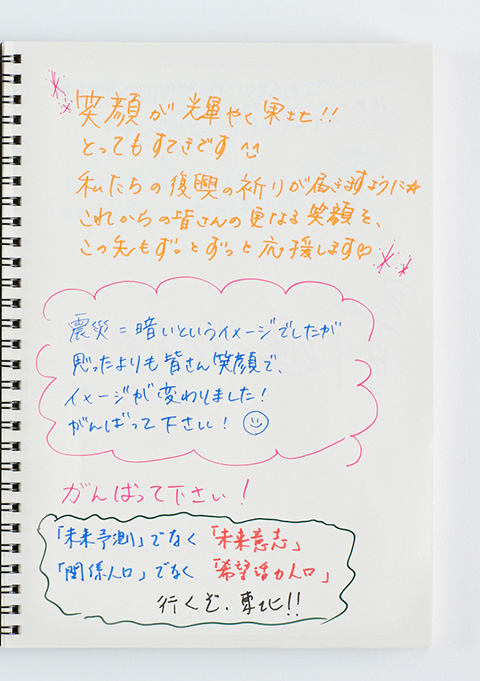 笑顔が輝やく東北!!
とってもすてきです
私たらの復興の祈りが届きますように☆
これからの皆さんの更なる笑顔を、
この先もずっとずっと応援します♡
震災=暗いというイメージでしたが
思ったよりも皆さん笑顔で、
イメージが変わりました!
がんばって下さい!
がんばって下さい!
「未来予測」でなく「未来意志」
「関係人口」でなく「希望活力人口」
行くぞ、東北!!